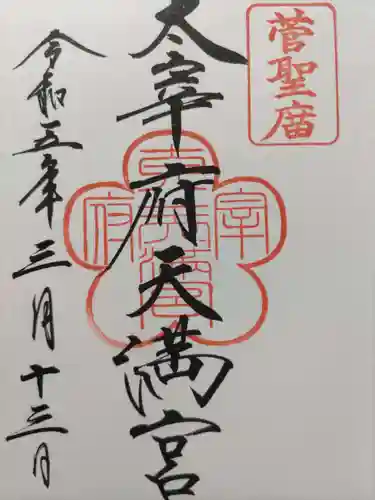 菅聖廟
太宰府天満宮
令和五年三月十三日